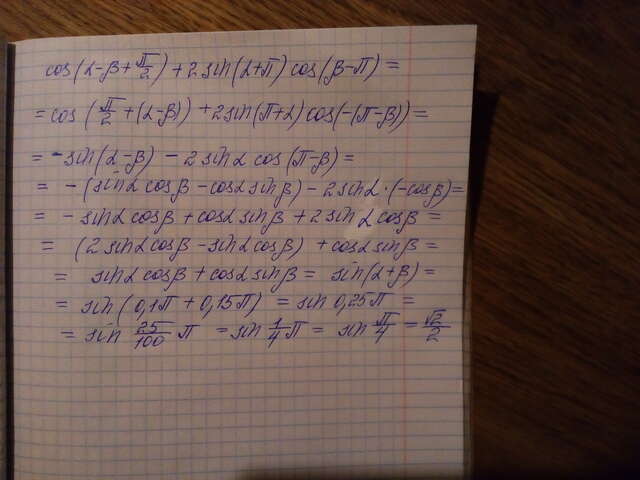 cos(α-β+π/2)+2sin(α+π)cos(β-π)=
=cos(π/2+(α-β))+2sin(π+α)cos(-(π-β))=
=-sin(α-β)-2sinα cos(π-β)=
=-(sinα cosβ-cosα sinβ)-2sinα·(-cosβ)=
=-sinα cosβ+cosα sinβ+2sinα cosβ=
=(2sinα cosβ-sinα cosβ)+cosα sinβ=
=sinα cosβ+cosα sinβ=sin(α+β)=
=sin(0,1π+0,15π)=sin 0,25π=
=sin 25/100 π=sin 1/4 π=sin π/4=√2/2